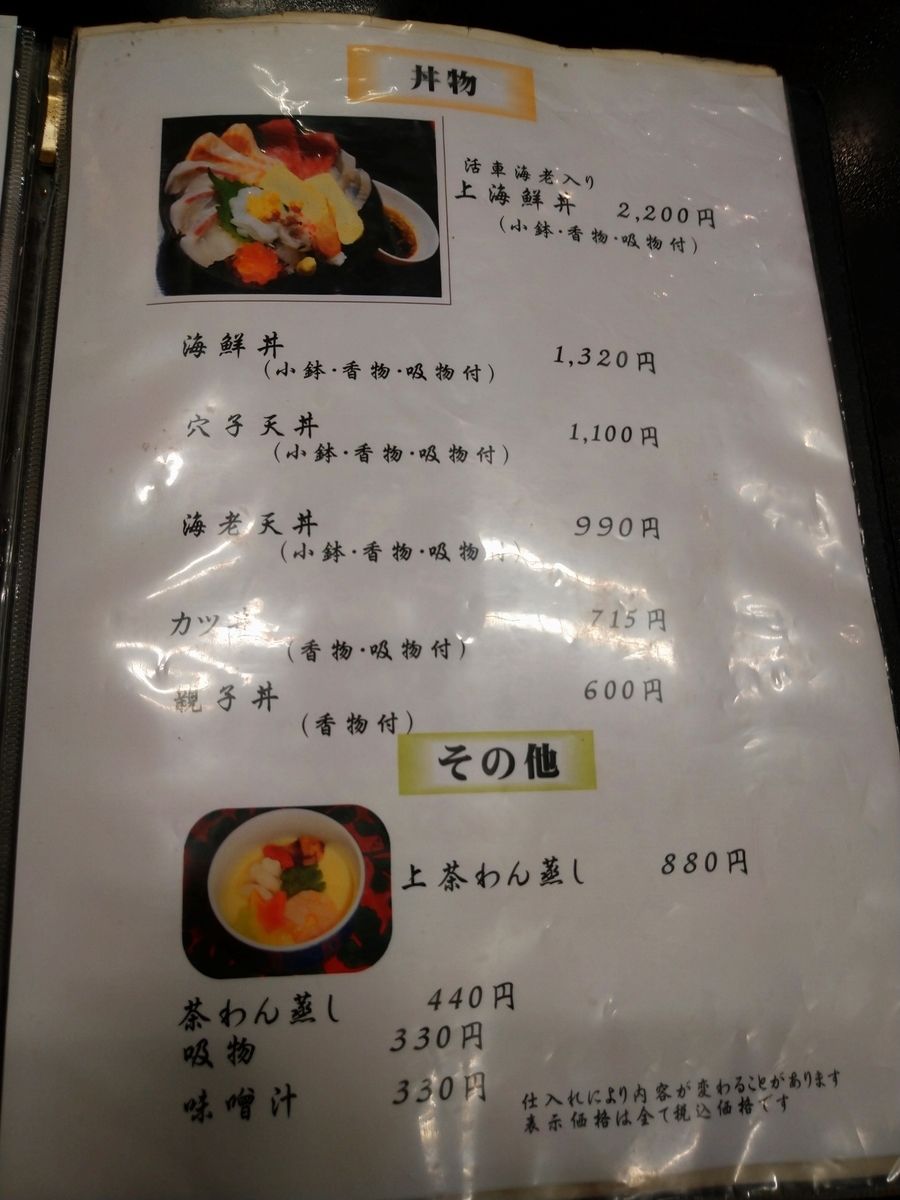 丼物
活車海老入り
上海鮮丼 2,200円
(小鉢・香物・吸物付)
海鮮丼 1,320円
(小鉢・香物・吸物付)
穴子天丼 1,100円
(小鉢・香物・吸物付)
海老天丼 990円
(小鉢・香物・吸物付)
カツ丼 715円
(香物・吸物付)
親子丼 600円
(香物付)
その他
上茶わん蒸し 880円
茶わん蒸し 440円
吸物 330円
味噌汁 330円
仕入れにより内容が変わることがあります
表示価格は全て税込価格です